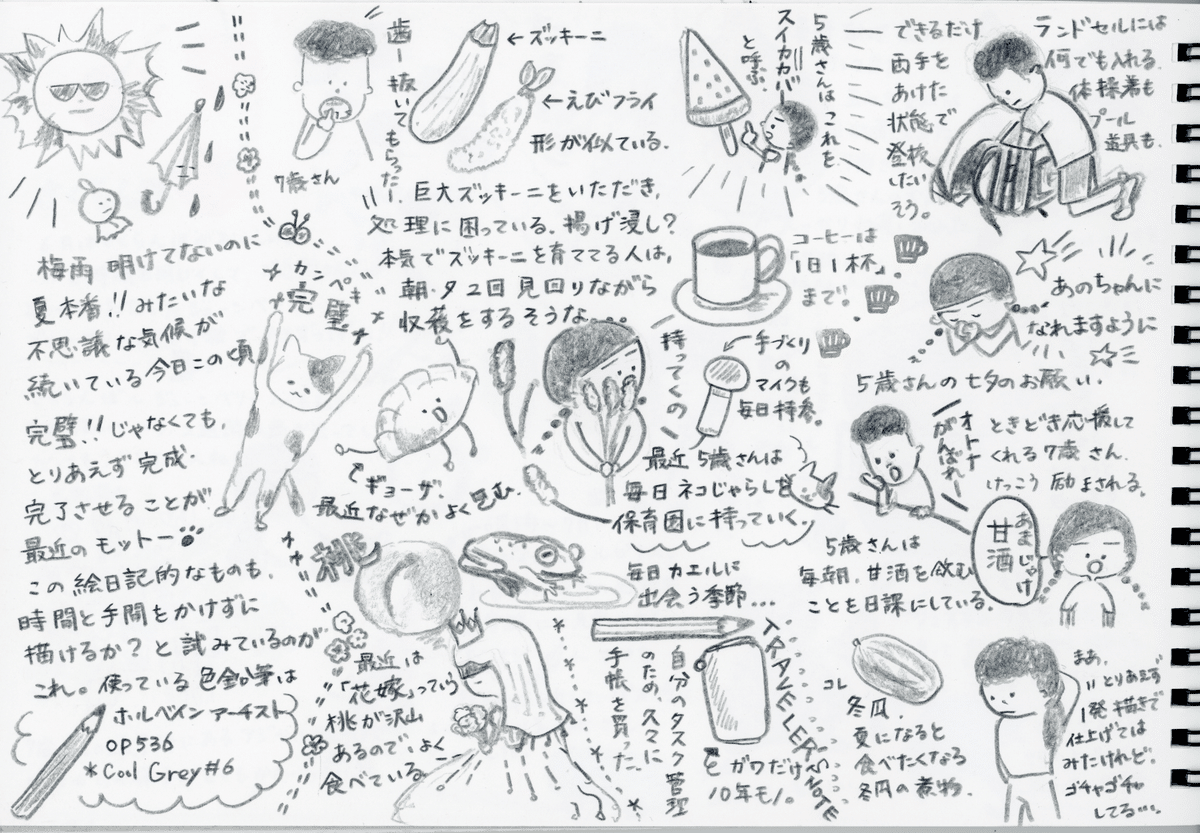 梅雨明けてないのに
夏本番!!みたいな
不思議な気候が
続いている今日この頃
完璧!!じゃなくても、
とりあえず完成・
完了させることが
最近のモットー
この絵日記的なものも、
時間と手間をかけずに
描けるか?と試みているのが
これ。使っている色鉛筆は
ホルベインアーチスト
OP536
*Cool Grey #6
カンペキ
完璧
7歳さん
歯一抜いてもらった!!
←ズッキーニ
←えびフライ
形が似ている.
巨大ズッキーニをいただき、
処理に困っている。揚げ浸し?
本気でズッキーニを育ててる人は、
朝・夕2回見回りながら
収穫をするそうな…
ギョーザ、
最近なぜかよく包む.
桃
最近は
「花嫁」っていう
桃が沢山
あるので、よく
食べている
5歳さんはこれを
スイカカバー
と呼ぶ。
コーヒーは
「1日1杯」
まで。
持ってくの
手づくり
の
マイクも
毎日持参。
最近5歳さんは
毎日ネコじゃらしを
保育園に持っていく.
毎日カエルに
出会う季節…
自分のタスク管理
のため、久々に
手帳を買った。
TRAVELER'S NOTE
ガワだけ
10年モノ.
できるだけ
両手を
あけた
状態で
登校
したい
そう。
ランドセルには
何でも入れる.
体操着も
プール
道具も.
あのちゃんに
なれますように
5歳さんの七夕のお願い.
オトナ
がんばれー
ときどき応援して
くれる7歳さん.
けっこう励まされる.
あまざけ
甘酒
5歳さんは
毎朝、甘酒を飲む
ことを日課にしている.
コレ
冬瓜.
夏になると
食べたくなる
冬瓜の煮物.
まあ、
とりあえず
1発描きで
仕上げては
みたけれど.
ゴチャゴチャ
してる….